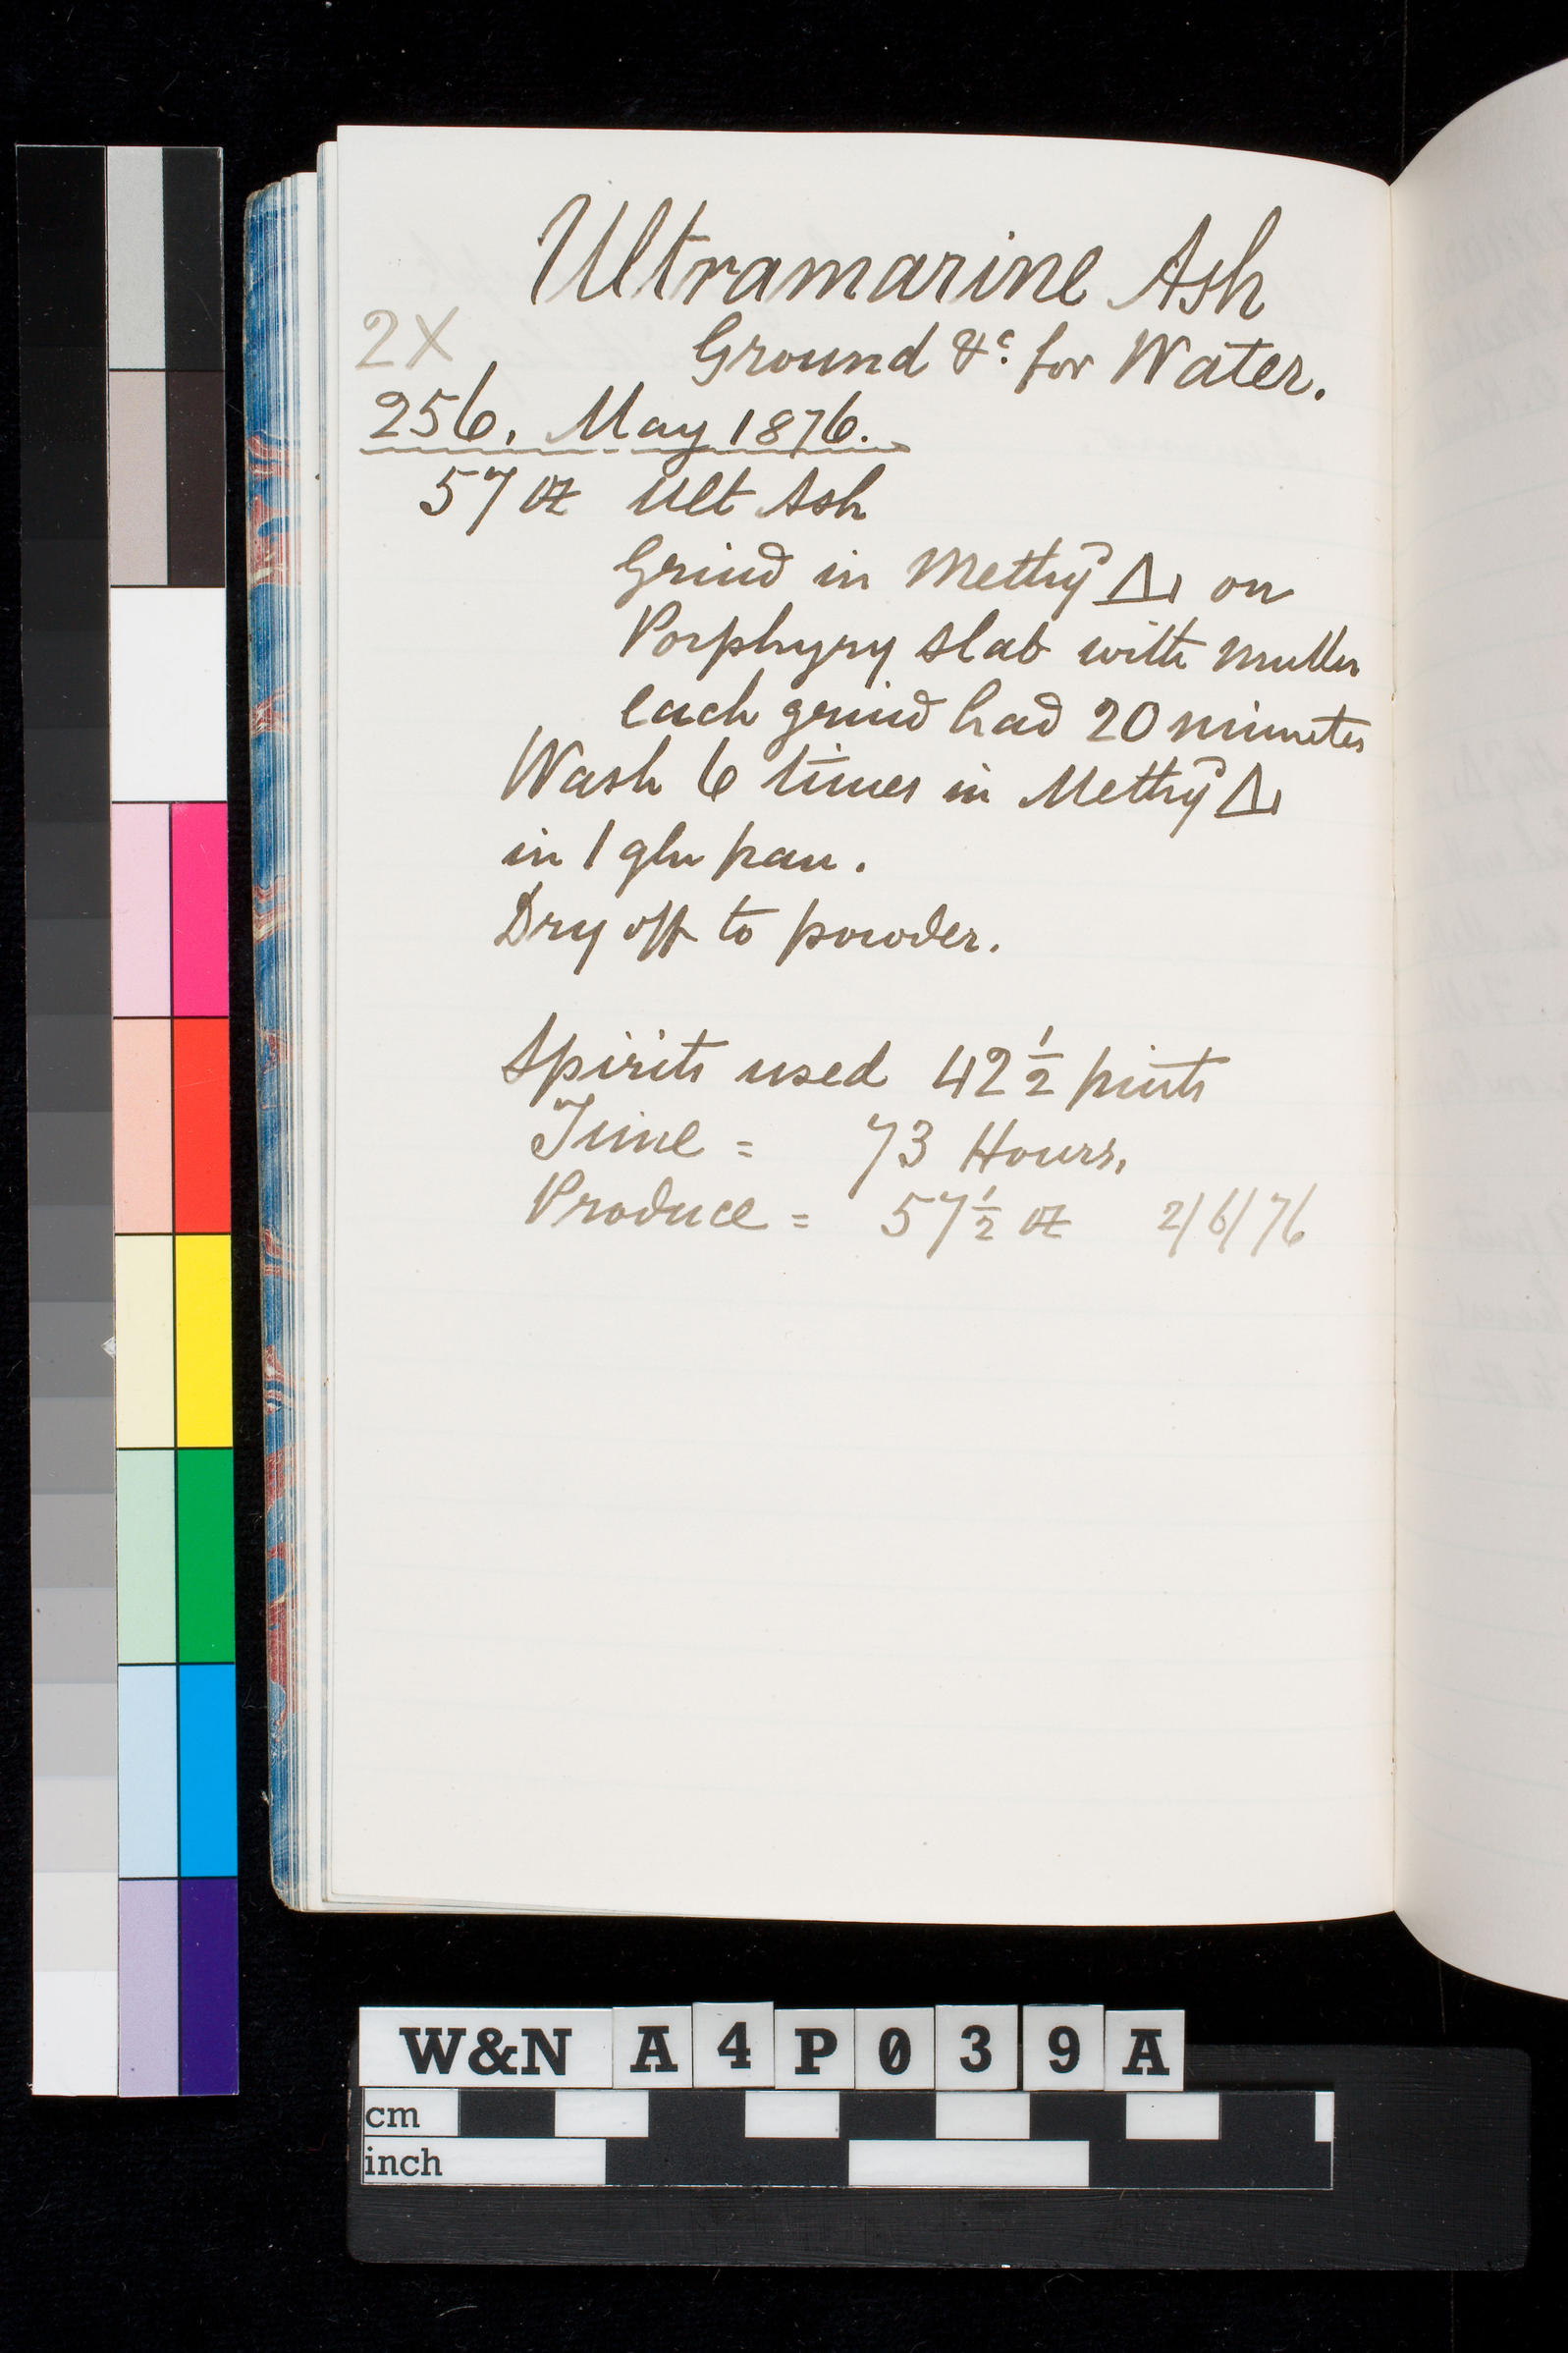 Ultramarine Ash
2X
Ground &c. for Water.
256. May 1876.
57 oz Ult Ash
Grind in Methyd △ on
Porphyry slab with muller
each grind had 20 minutes
Wash 6 times in Methyd △
in 1 gln pan.
Dry off to powder.
Spirits used 42 1/2 pints
Time = 73 Hours.
Produce = 57 1/2 oz 2/6/76
W&N A4P039A
cm
inch